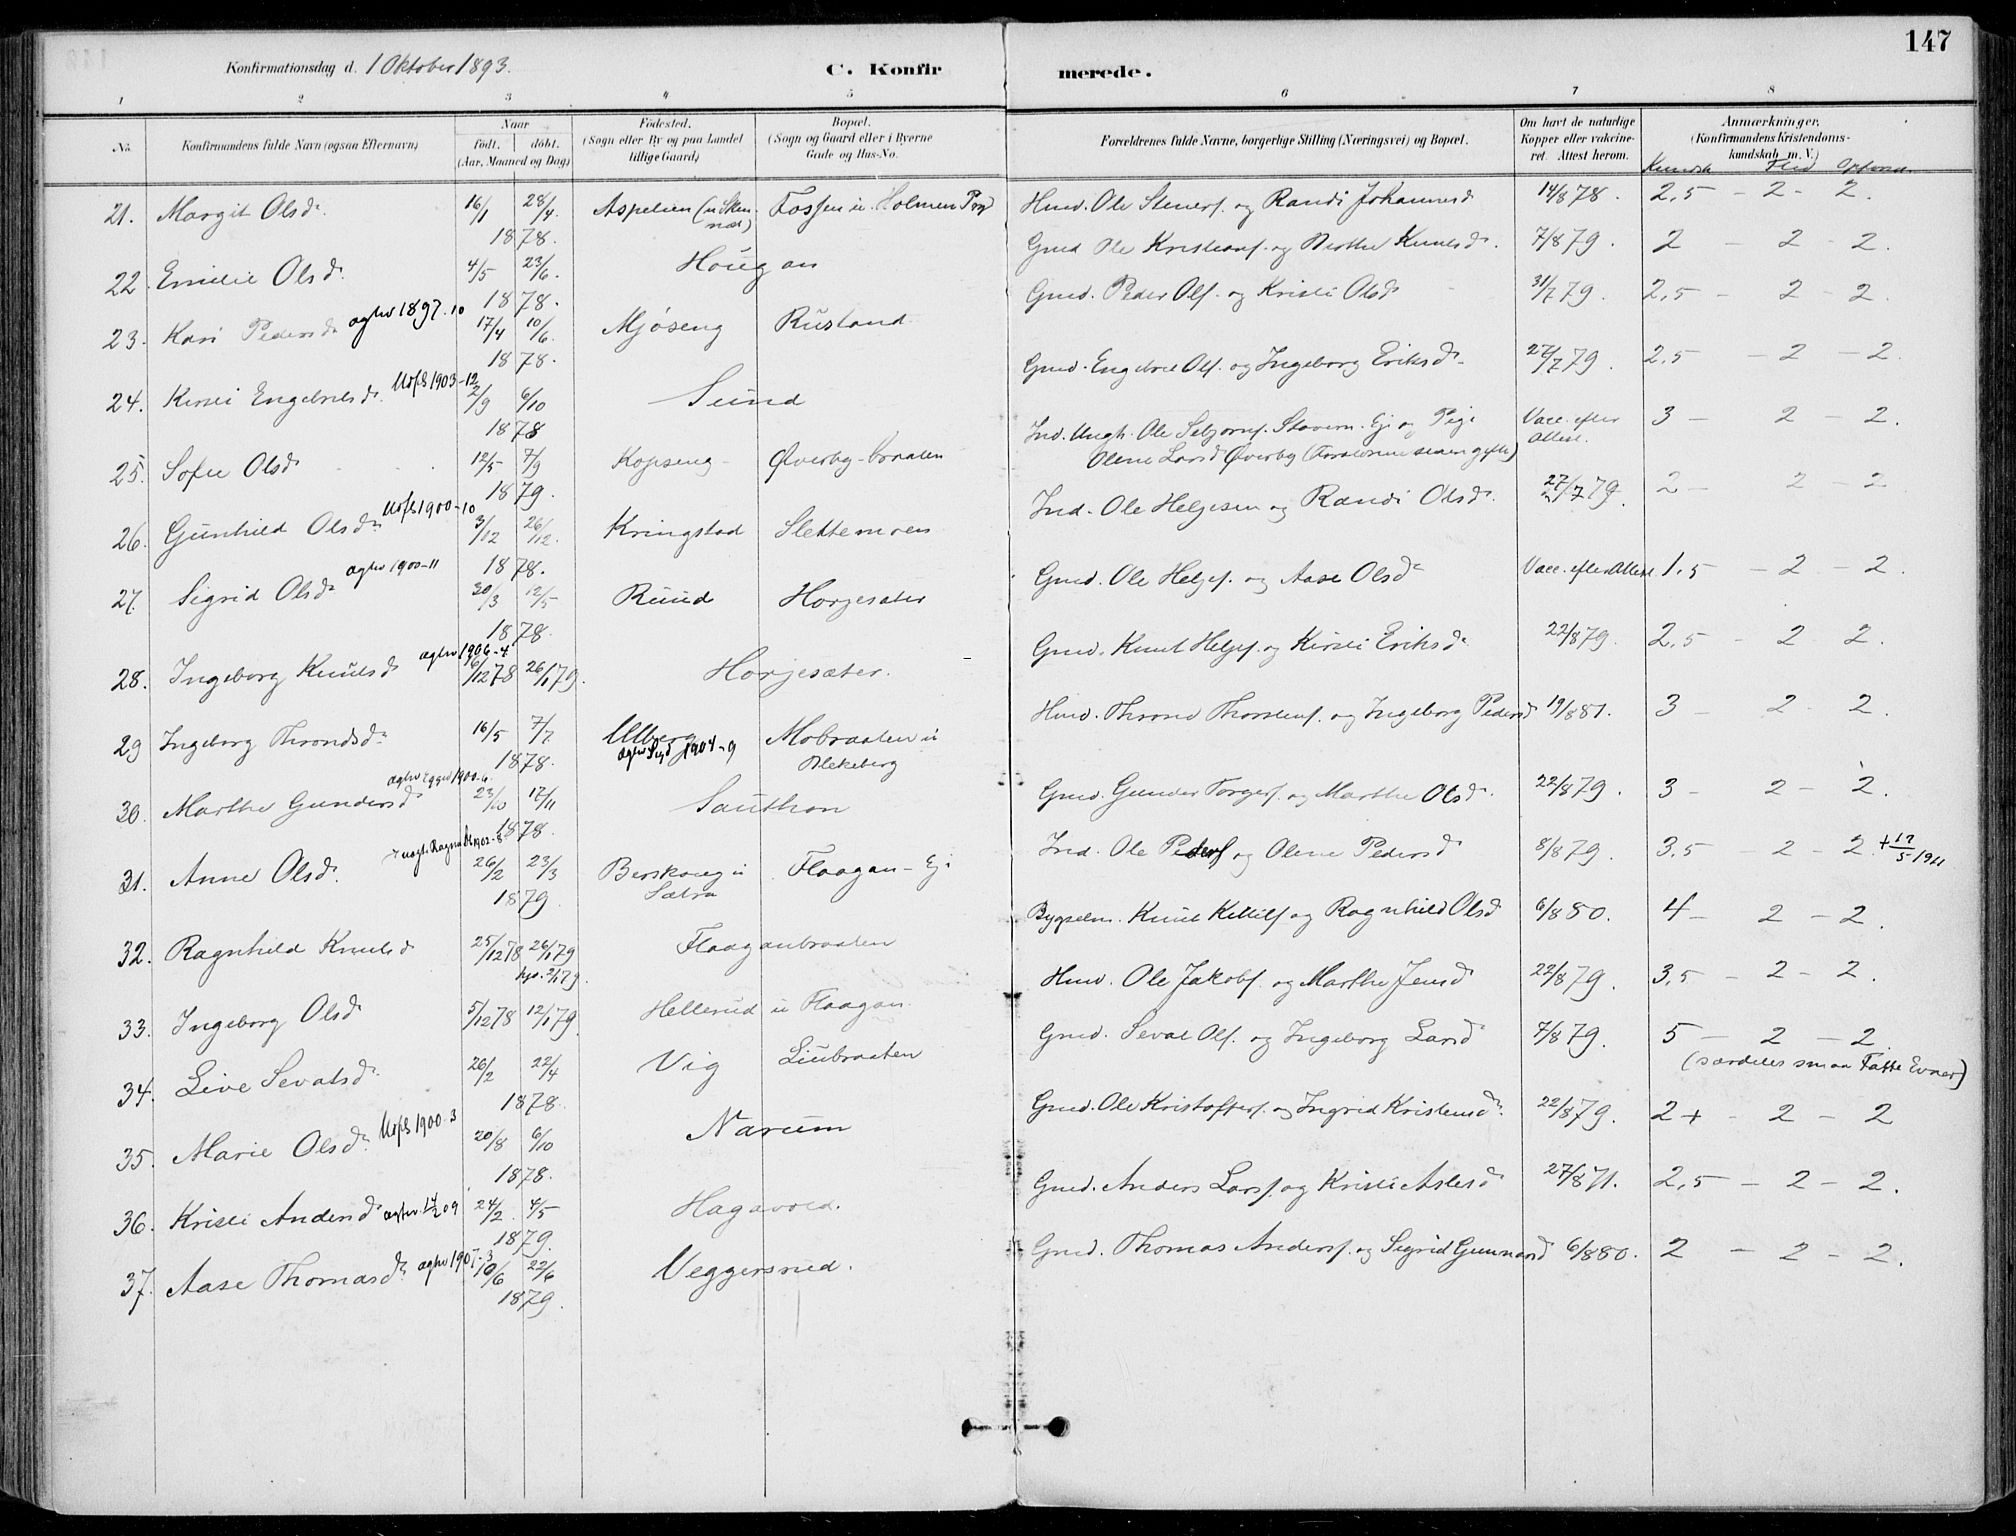 147
Konfirmationsdag d. 1 Oktober 1893.
C. Konfirmerede.
1 2 3 4 5 6 7 8
No.
Konfirmandens fulde Navn (ogsaa Efternavn)
Naar
født. døbt.
(Aar, Maaned og Dag)
Fødested.
(Sogn eller By og paa Landet tillige Gaard)
Bopæl.
(Sogn og Gaard eller i Byerne Gade og Hus-No.
Forældrenes fulde Navne, borgerlige Stilling (Næringsvei) og Bopæl.
Om havt de naturlige Kopper eller vakcineret. Attest herom.
Anmærkninger.
(Konfirmandens Kristendomskundskab m. V.)
Kundsk Flid Opførsel
21. Margit Olsd. 16/1 28/4 1878. Aspelien (u. Sken- næs) Fossen u. Holmen Hmd. Ole Stenersf. og Randi Johannesd 14/8 78. 2,5 – 2 – 2.
22. Emilie Olsd. 4/5 23/6 1878. Haugan Gmd Ole Kristiansf. og Berthe Knutsd. 7/8 79. 2 – 2 – 2.
23. Kari Pedersd. agtev 1897.10 17/4 10/6 1878. Mjøseng Rustand Gmd. Peder Olsf. og Kristi Olsd 31/7 79. 2,5 – 2 – 2.
24. Kirsti Engebretsd. Udfl 1903-12 2/9 6/10 1878 Sund Gmd. Engebret Olsf. og Ingeborg Eriksd. 27/7 79. 2,5 – 2 – 2.
25. Sofie Olsd. 12/5 7/9 1879. Kopseng Øverby-braaten Ind. Ungk. Ole Sebjørnsf. Stavern. Ej og Pige Olene Larsd Øverby (Forældrene senere gifte) Vacc. efter Attest. 3 – 2 – 2.
26. Gunhild Olsd. Udfl 1900-10 3/12 26/12. 1878. Kringstad Slettemoen Ind. Ole Helgesen og Randi Olsd. 27/7 79. 2 – 2 – 2
27. Sigrid Olsd. agtev 1900-11 20/3 12/5 1878. Ruud Horgesæter Gmd. Ole Helgesf. og Aase Olsd. Vacc. efter Attest 1,5 – 2 – 2.
28. Ingeborg Knutsd agtev 1906-4 6/12 78 26/1 79. Horjesæter. Gmd. Knut Helgesf. og Kirsti Eriksd. 22/8 79. 2,5 – 2 – 2.
29 Ingeborg Throndsd. 16/5 7/7 1878. Ulberg agtev Sigd 1904-9 Mobraaten u Blekeberg Hmd. Thrond Thorstensf. og Ingeborg Pedersd 19/8 81. 3 – 2 – 2.
30. Marthe Gundersd. agtev Eggedal 1900-6. 23/10 17/11 1878. Sauthon Gmd. Gunder Torgersf. og Marthe Olsd. 22/8 79. 3 – 2 – 2.
31. Anne Olsd. 1902-8 26/2 23/3 1879. Berskaug u Sætra Flaagan – Ej Ind. Ole Pedersf og Olene Pedersd 8/8 79. 3,5 – 2 – 2. + 17/5 1911
32. Ragnhild Knutsd 25/12 78 26/1 79 hjd. 2/1 79. Flaaganbraaten Bygselm. Knut Kittilsf og Ragnhild Olsd 6/8 80. 4 – 2 – 2.
33. Ingeborg Olsd. 5/12 78 12/1 79. Hellerud u Flaagan. Hmd. Ole Jakobsf. og Marthe Jensd. 22/8 79. 3,5 – 2 – 2.
34. Live Sevatsd. 26/2 22/4 1878. Vig Liubraaten Gmd. Sevat Olsf. og Ingeborg Larsd. 7/8 79. 5 – 2 – 2 (særdeles smaa Fatte Evner)
35. Marie Olsd. Udfl 1900-3 20/8 6/10 1878. Narum Gmd. Ole Kristoffersf. og Ingrid Kristensd. 22/8 79. 2+ – 2 – 2
36. Kristi Andersd. agtev. 09 24/2. 4/5 1879. Hagavold. Gmd. Anders Larsf. og Kristi Aslesd. 27/8 71. 2,5 – 2 – 2.
37. Aase Thomasd. agtev 1907-3 10/6 22/6 1879. Veggersrud. Gmd. Thomas Andersf. og Sigrid Gunnarsd 6/8 80. 2 – 2 – 2.